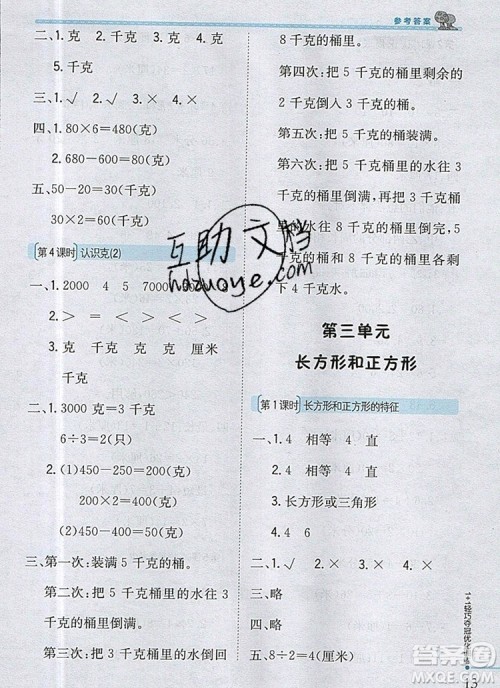 参考答案
二、1. 克 2. 千克 3. 克 4. 克
5. 千克
三、1. √ 2. √ 3. × 4. ×
四、1. 80×6=480(克)
2. 680-600=80(克)
五、50-20=30(克)
30×2=60(克)
第4课时 认识克(2)
一、1. 2000 4 5 7000
2. > = = < =
3. 克 千克 克 厘米
千克
二、1. 3000 克=3 千克
6÷3=2(只)
2. (1)450-250=200(克)
200×2=400(克)
(2)450-400=50(克)
三、第一次：装满 5 千克的桶。
第二次：把 5 千克的桶里的水往 3
千克的桶里倒满。
第三次：把 3 千克的桶的水倒回
8 千克的桶里。
第四次：把 5 千克的桶里剩余的
2 千克倒入 3 千克的桶里。
第五次：把 5 千克的桶装满。
第六次：把 5 千克的桶里的水往 3
千克的桶里倒满，再把 3 千克桶里
的水倒回 8 千克的桶里。
第七次：把 5 千克的桶里的水往 3
千克的桶里倒满，5 千克的桶里剩
下 4 千克水。
第三单元
长方形和正方形
第1课时 长方形和正方形的特征
一、1. 4 相等 4 直
2. 4 相等 4 直
3. 长方形或三角形
4. 4 6
二、√ √ × ×
三、略
四、略
五、8÷2=4(厘米)
互助文档
hdzuoye.com
1+1轻巧夺冠优
13